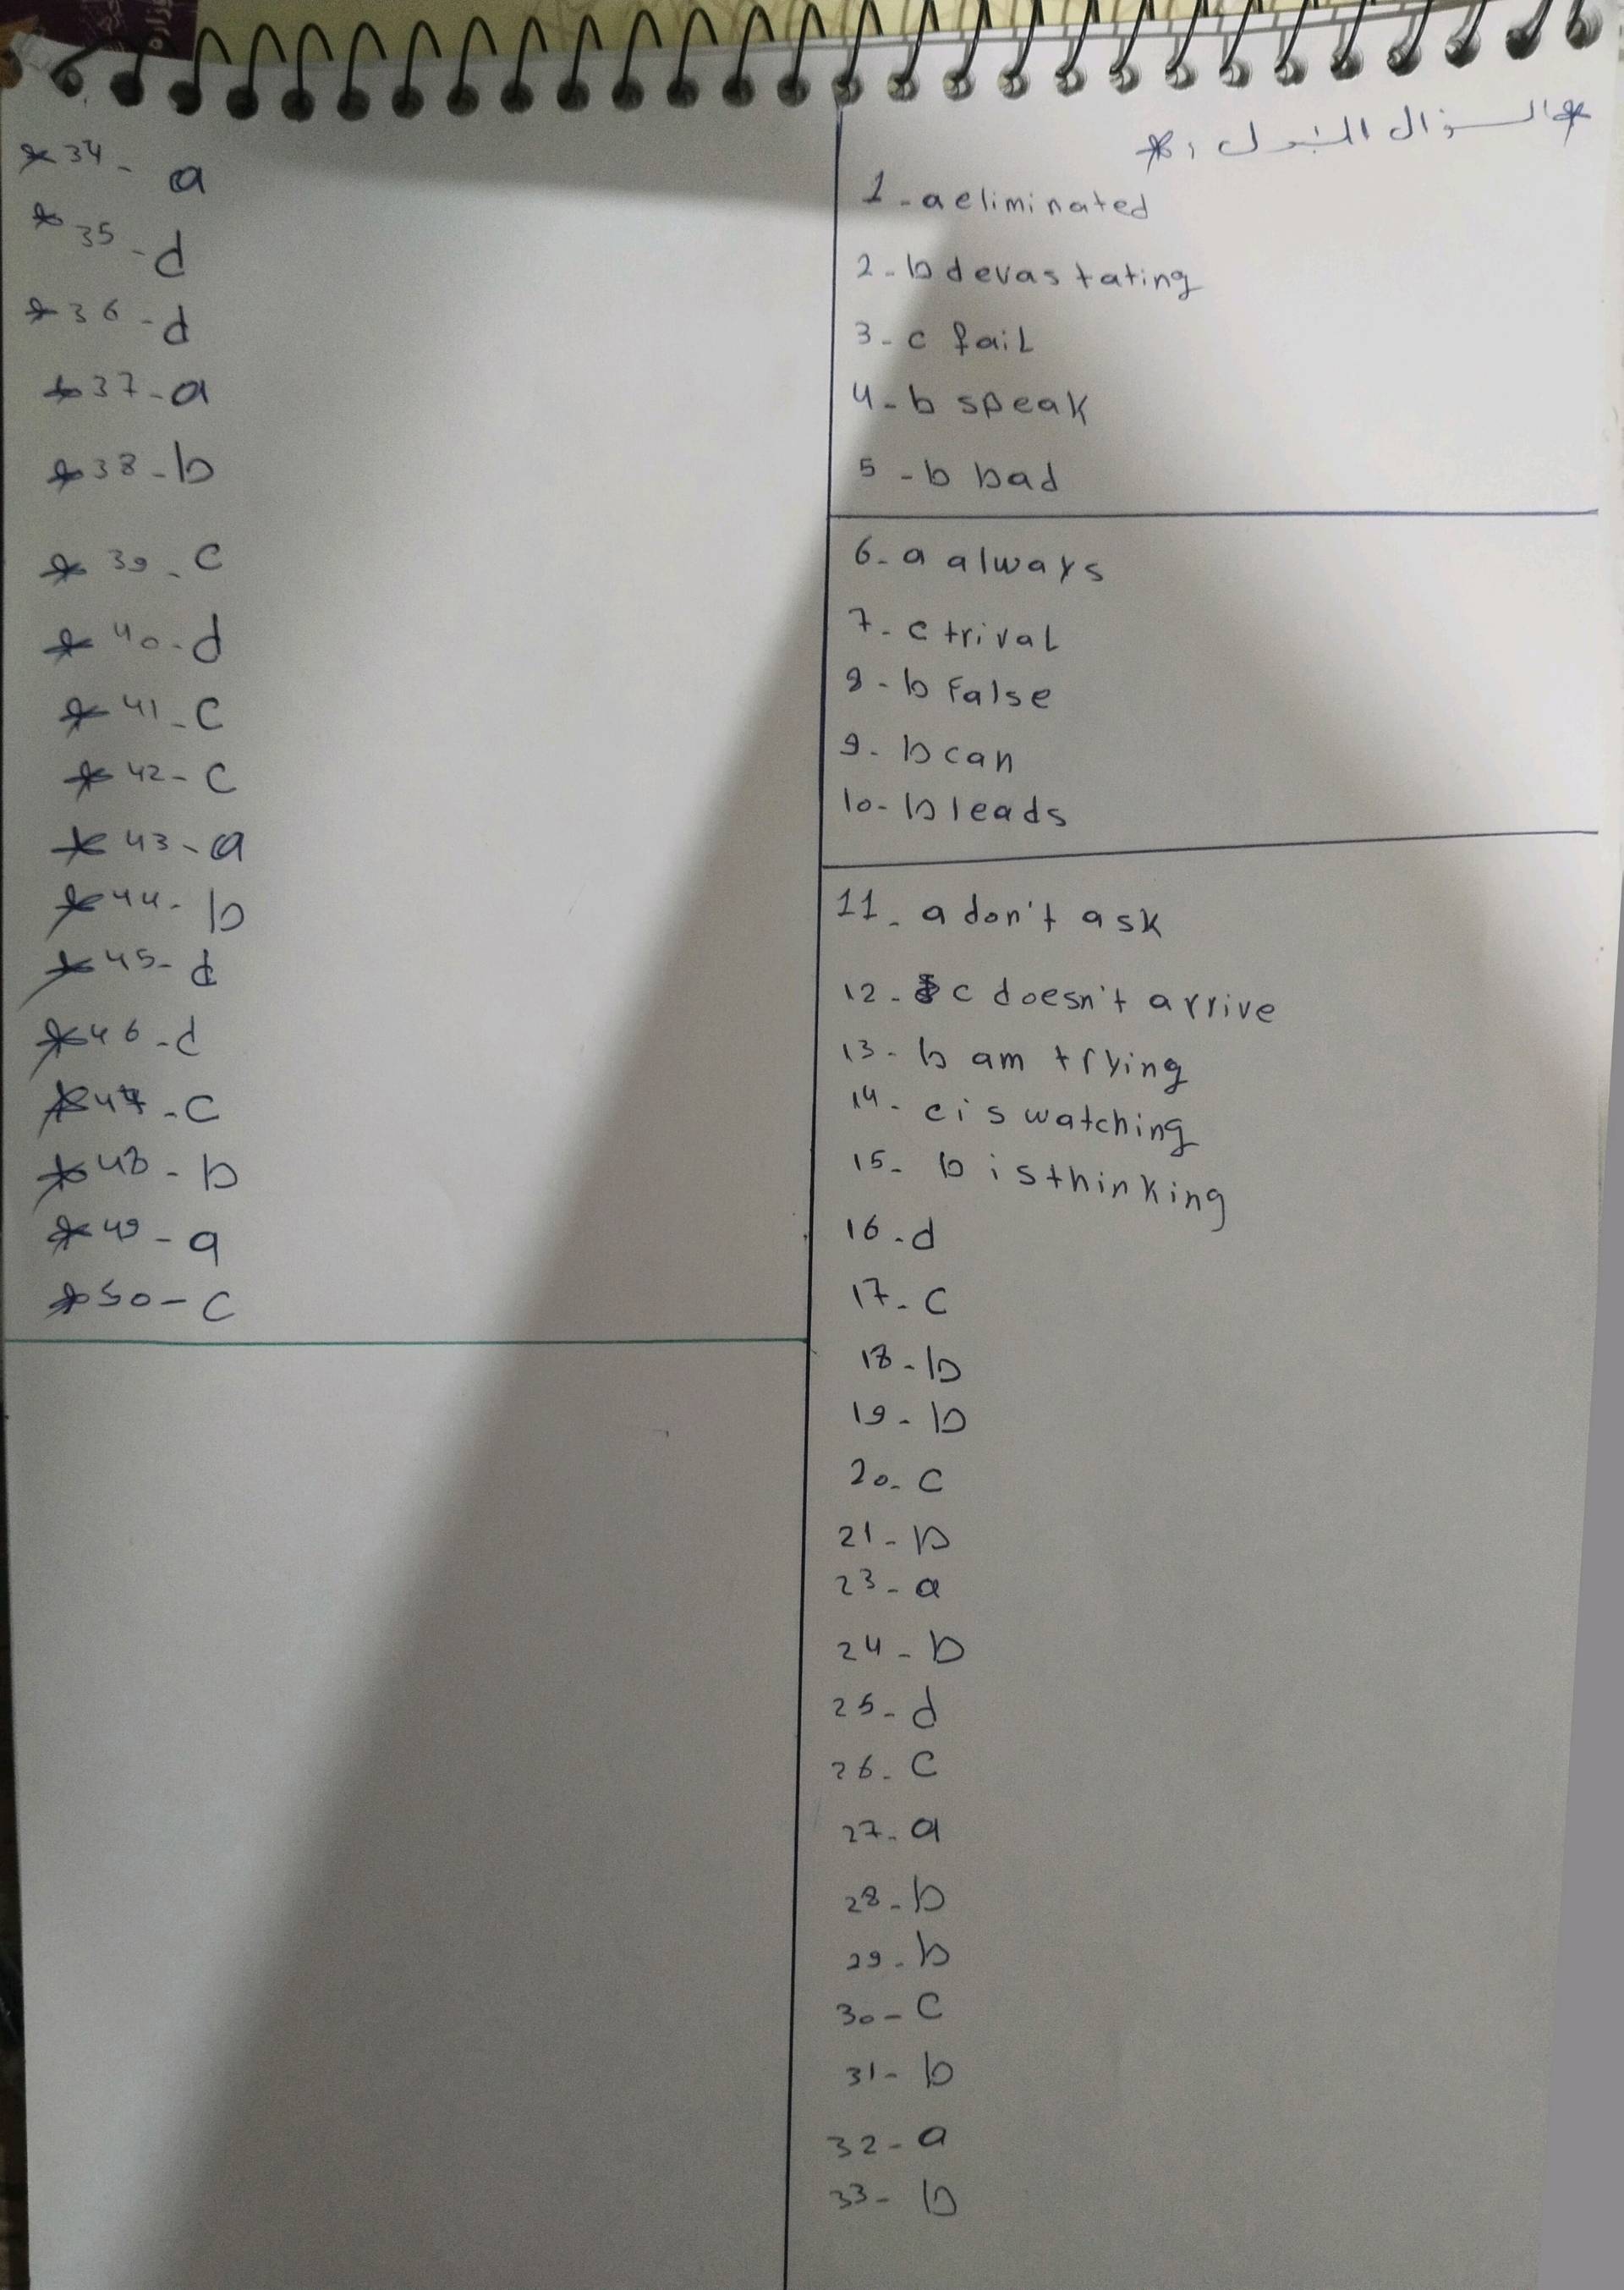 *السؤال الأول :*
1 - a eliminated
2 - b devastating
3 - c fail
4 - b speak
5 - b bad
6 - a always
7 - c trival
8 - b False
9 - b can
10 - b leads
11 - a don't ask
12 - c doesn't arrive
13 - b am trying
14 - c is watching
15 - b is thinking
16 - d
17 - c
18 - b
19 - b
20 - c
21 - b
23 - a
24 - b
25 - d
26 - c
27 - a
28 - b
29 - b
30 - c
31 - b
32 - a
33 - b
* 34 - a
* 35 - d
* 36 - d
* 37 - a
* 38 - b
* 39 - c
* 40 - d
* 41 - c
* 42 - c
* 43 - a
* 44 - b
* 45 - d
* 46 - d
* 47 - c
* 48 - b
* 49 - a
* 50 - c